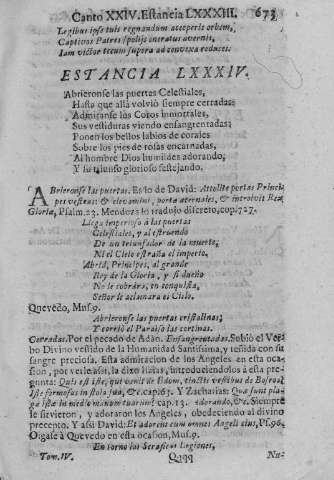 Canto XXIV. Estancia LXXXIII. 673
Legibus ipse tuis regnandum acceperis orbem,
Captivos Patres spolijs oneratus avernis,
Iam victor tecum supera ad convexa reduces.
ESTANCIA LXXXIV.
Abrieronse las puertas Celestiales,
Hasta que allà volviò siempre cerradas:
Admiranse los Coros inmortales,
Sus vestiduras viendo ensangrentadas:
Ponen los bellos labios de corales
Sobre los pies de rosas encarnadas,
Al hombre Dios humildes adorando,
Y su triunfo glorioso festejando.
Abrieronse las puertas. Es lo de David: Attollite portas Princi-
pes vestras: & elevamini, portæ æternales, & introibit Rex
Gloriæ, Psalm. 23. Mendoza lo tradujo discreto, cop. 727.
Llega imperioso à las puertas
Celestiales, y al estruendo
De un triunfador de la muerte,
Ni el Cielo estraña el imperio,
Abrid, Principes, al grande
Rey de la Gloria, y si dueño
No le cobrára, en conquista,
Señor le aclamara el Cielo.
Quevedo, Mus. 9.
Abrieronse las puertas cristalinas;
Y corriò el Paraiso las cortinas.
Cerradas. Por el pecado de Adàn. Ensangrentadas. Subiò el Ver-
bo Divino vestido de la Humanidad Santissima, y teñida con su
sangre preciosa. Esta admiracion de los Angeles en esta oca-
sion, por veriensis, la dixo Isaias, introduciendolos à esta pre-
gunta: Quis est iste, qui venit de Edom, tinctis vestibus de Bosra,
Iste formosus in stola sua, &c. cap. 63. Y Zacharias: Quæ sunt pla-
gæ istæ in medio manuum tuarum? cap. 13. Adorando, &c. Siempre
le sirvieron, y adoraron los Angeles, obedeciendo al divino
precepto. Y assi David: Et adorent eum omnes Angeli eius, Ps. 96.
Oigase à Quevedo en esta ocasion, Mus. 9.
En torno las Serafices Legiones,
Tom. IV. Qqqq Nu-